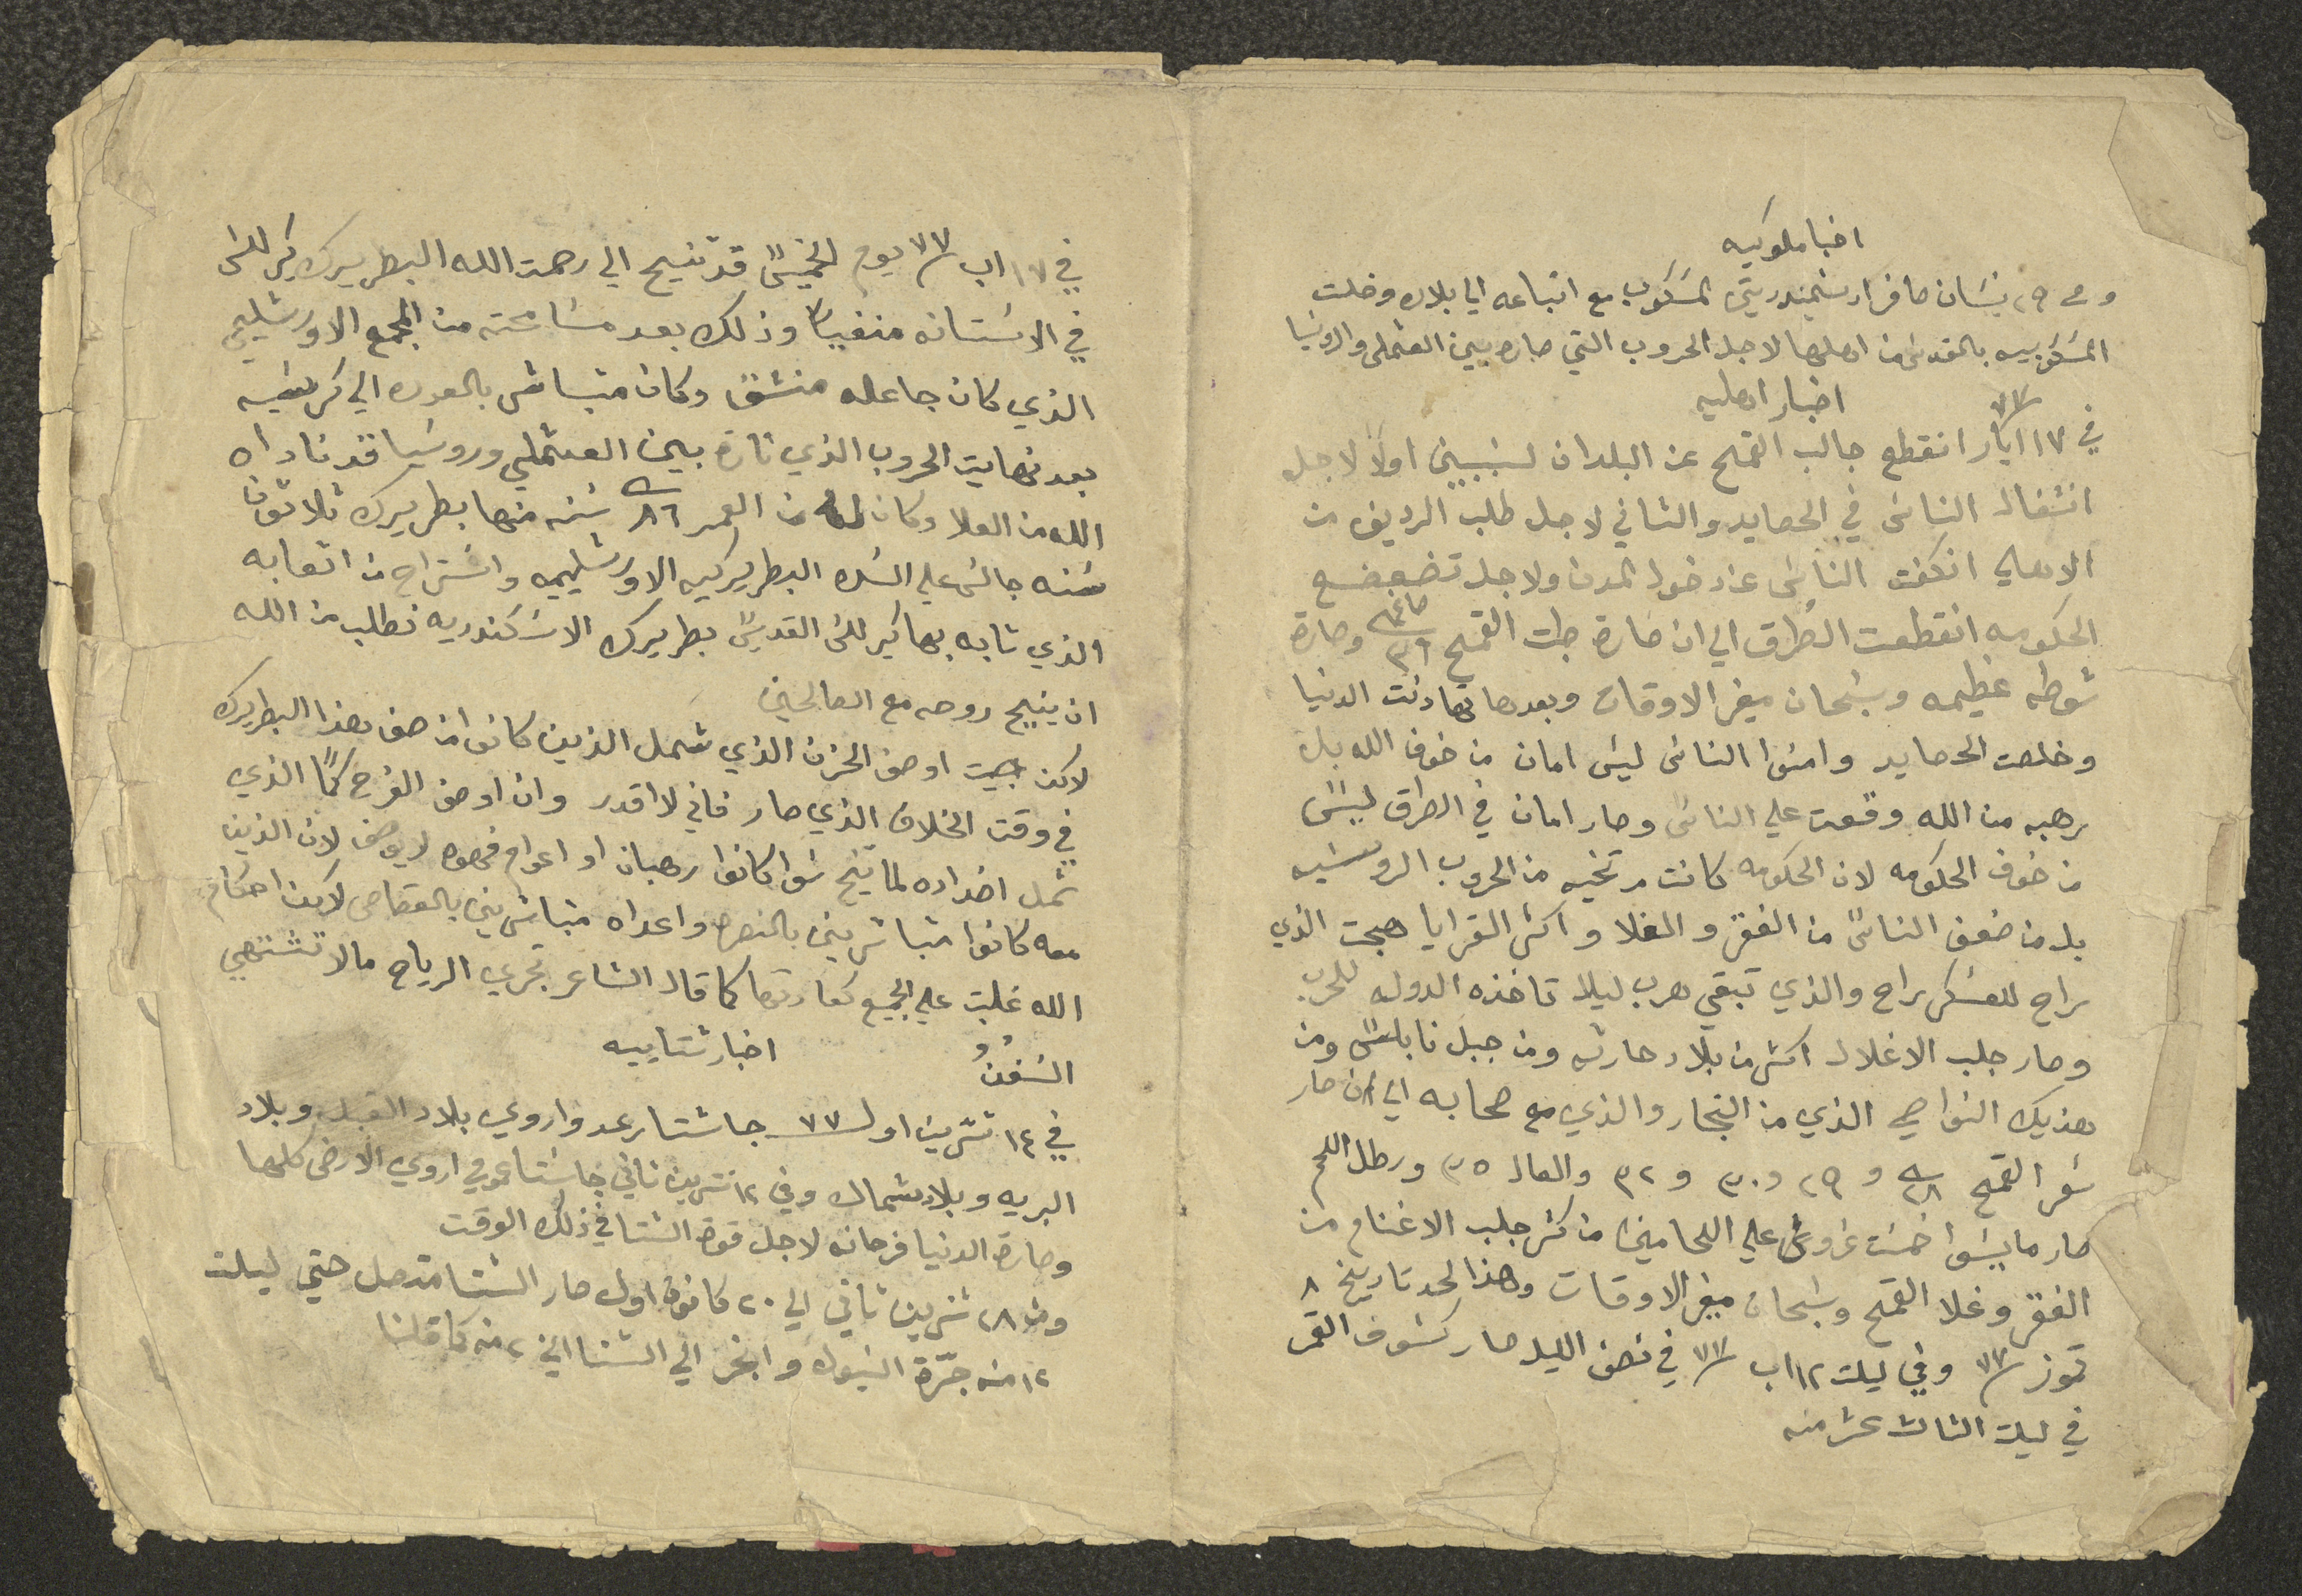 اخبا ملوكيه
وفي ٢٩ نيسان صافر ارشمندريتى المسكوب مع اتباعه الي بلاده وخلت
المسكوبيه بالقدس من اهلها لاجل الحروب التي صاره بين العثملي والروسيا
اخبار اهليه
في ١٧ ايار ٧٧ انقطع جالب القمح عن البلدان لسببين اولاً لاجل
انشغال الناس في الحصايد والثاني لاجل طلب الرديف من
الاهالي انكفت الناس عن دخول المدن ولاجل تضعضع
الحكومه انقطعت الطرق الي ان صارة القمح ٣٦ وصارة
شوطه عظيمه وسبحان ميغر الاوقات وبعدها تهادنت الدنيا
وخلصت الحصايد وامنوا الناس ليس امان من خوف الله بل
رهبه من الله وقعت علي الناس وصار امان في الطرق ليس
من خوف الحكومه لان الحكومه كانت مرتخيه من الحروب الروسيه
بل من ضعف الناس من الفقر والغلا واكثر القرايا هجت الذي
راح للعسكر راح والذي تبقي هرب ليلا تاخذه الدوله للحرب
وصار جلب الاغلال اكثر من بلاد حارثه ومن جبل نابلس ومن
هذيك النواحي الذي من التجار والذي مع صحابه الي ان صار
سعر القمح ٢٨ و ٢٩ و ٣٠ و ٣٢ والعال ٣٥ ورطل اللحم
صار ما يسوا خمست غروش علي اللحامين من كثر جلب الاغنام من
الفقر وغلا القمح وسبحان ميغر الاوقات وهذا لحد تاريخ ٨
تموز ٧٧ وفي ليلت ١٢ اب ٧٧ في نصف الليل صار كسوف القمر
في ليلت الثالث عشر منه
في ١٧ اب ٧٧ يوم الخميس قد تنيح الي رحمت الله البطريرك كيرللس
في الاستانه منفياً وذلك بعد مسامحته من المجمع الاورشليمي
الذي كان جاعله منشق وكان متباشر بالعوده الي كرسيه
بعد نهايت الحروب الذي ثارة بين العثملي وروسيا قد ناداه
الله من العلا وكان له من العمر ٨٦ سنه منها بطريرك ثلاثون
سنه جالس علي السده البطريركيه الاورشليميه واستراح من اتعابه
الذي تابه بها كيرللس القديس بطريرك الاسكندريه نطلب من الله
ان ينيح روحه مع الصالحين
لاكن جيت اوصف الحزن الذي شمل الذين كانوا من صف هذا البطريرك
في وقت الخلاف الذي صار فاني لا اقدر وان اوصف الفرح كماً الذي
شمل اضداده لما تنيح سوا كانوا رهبان او اعوام فهوه لا يوصف لان الذين
معه كانوا متباشرين بالنصره واعداه متباشرين بالقصاص لاكن احكام
الله غلبت علي الجميع كعادتها كما قال الشاعر تجري الرياح مالا تشتهي
السُفنُ
اخبار شتاييه
في ١٤ تشرين اول ٧٧ جا شتا رعد واروي بلاد القبل وبلاد
البريه وبلاد شمال وفي ١٢ تشرين ثاني جا شتا عمومي اروي الارض كلها
وصارة الدنيا فرحانه لاجل قوة الشتا في ذلك الوقت
ومن ٢٨ تشرين ثاني الي ٢٠ كانون اول صار الشتا متصل حتي ليلت
١٢ منه جرّة السيول وانجر الي الشتا الي ٢ منه كما قلنا